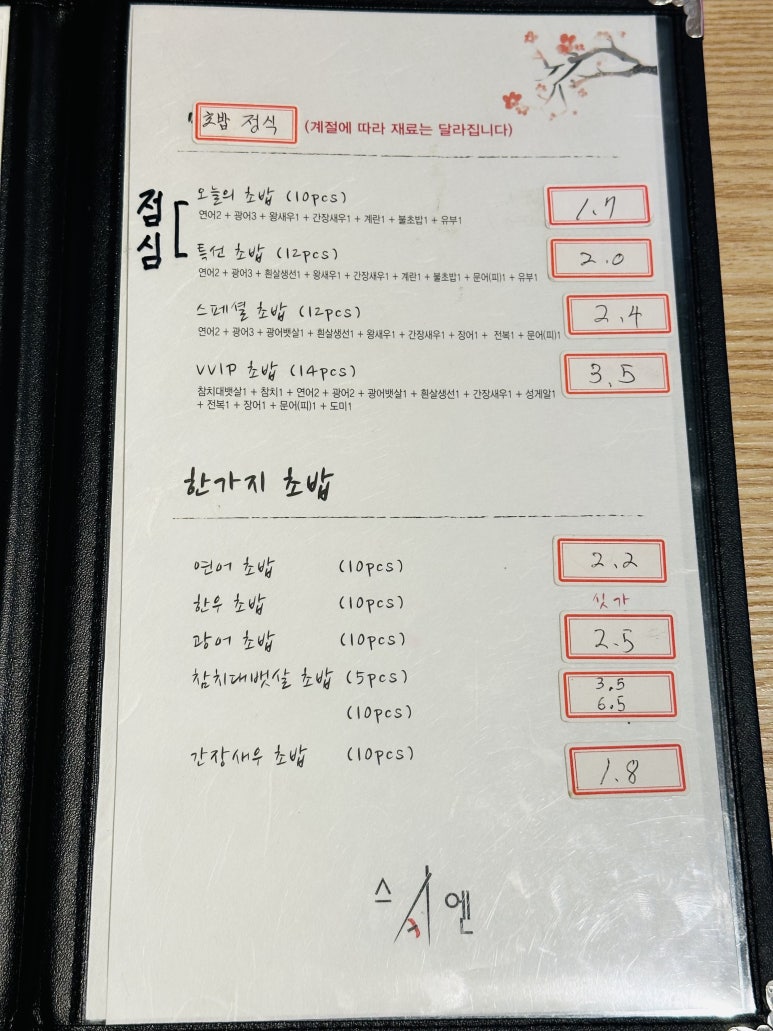 초밥 정식 (계절에 따라 재료는 달라집니다)
점심
오늘의 초밥 (10pcs) 1.7
연어2 + 광어3 + 왕새우1 + 간장새우1 + 계란1 + 불초밥1 + 유부1
특선 초밥 (12pcs) 2.0
연어2 + 광어3 + 흰살생선1 + 왕새우1 + 간장새우1 + 계란1 + 불초밥1 + 문어(피)1 + 유부1
스페셜 초밥 (12pcs) 2.4
연어2 + 광어3 + 광어뱃살1 + 흰살생선1 + 왕새우1 + 간장새우1 + 장어1 + 전복1 + 문어(피)1
VVIP 초밥 (14pcs) 3.5
참치대뱃살1 + 참치1 + 연어2 + 광어2 + 광어뱃살1 + 흰살생선1 + 간장새우1 + 성게알1
+ 전복1 + 장어1 + 문어(피)1 + 도미1
한가지 초밥
연어 초밥 (10pcs) 2.2
한우 초밥 (10pcs) 싯가
광어 초밥 (10pcs) 2.5
참치대뱃살 초밥 (5pcs) 3.5
(10pcs) 6.5
간장새우 초밥 (10pcs) 1.8
스시엔